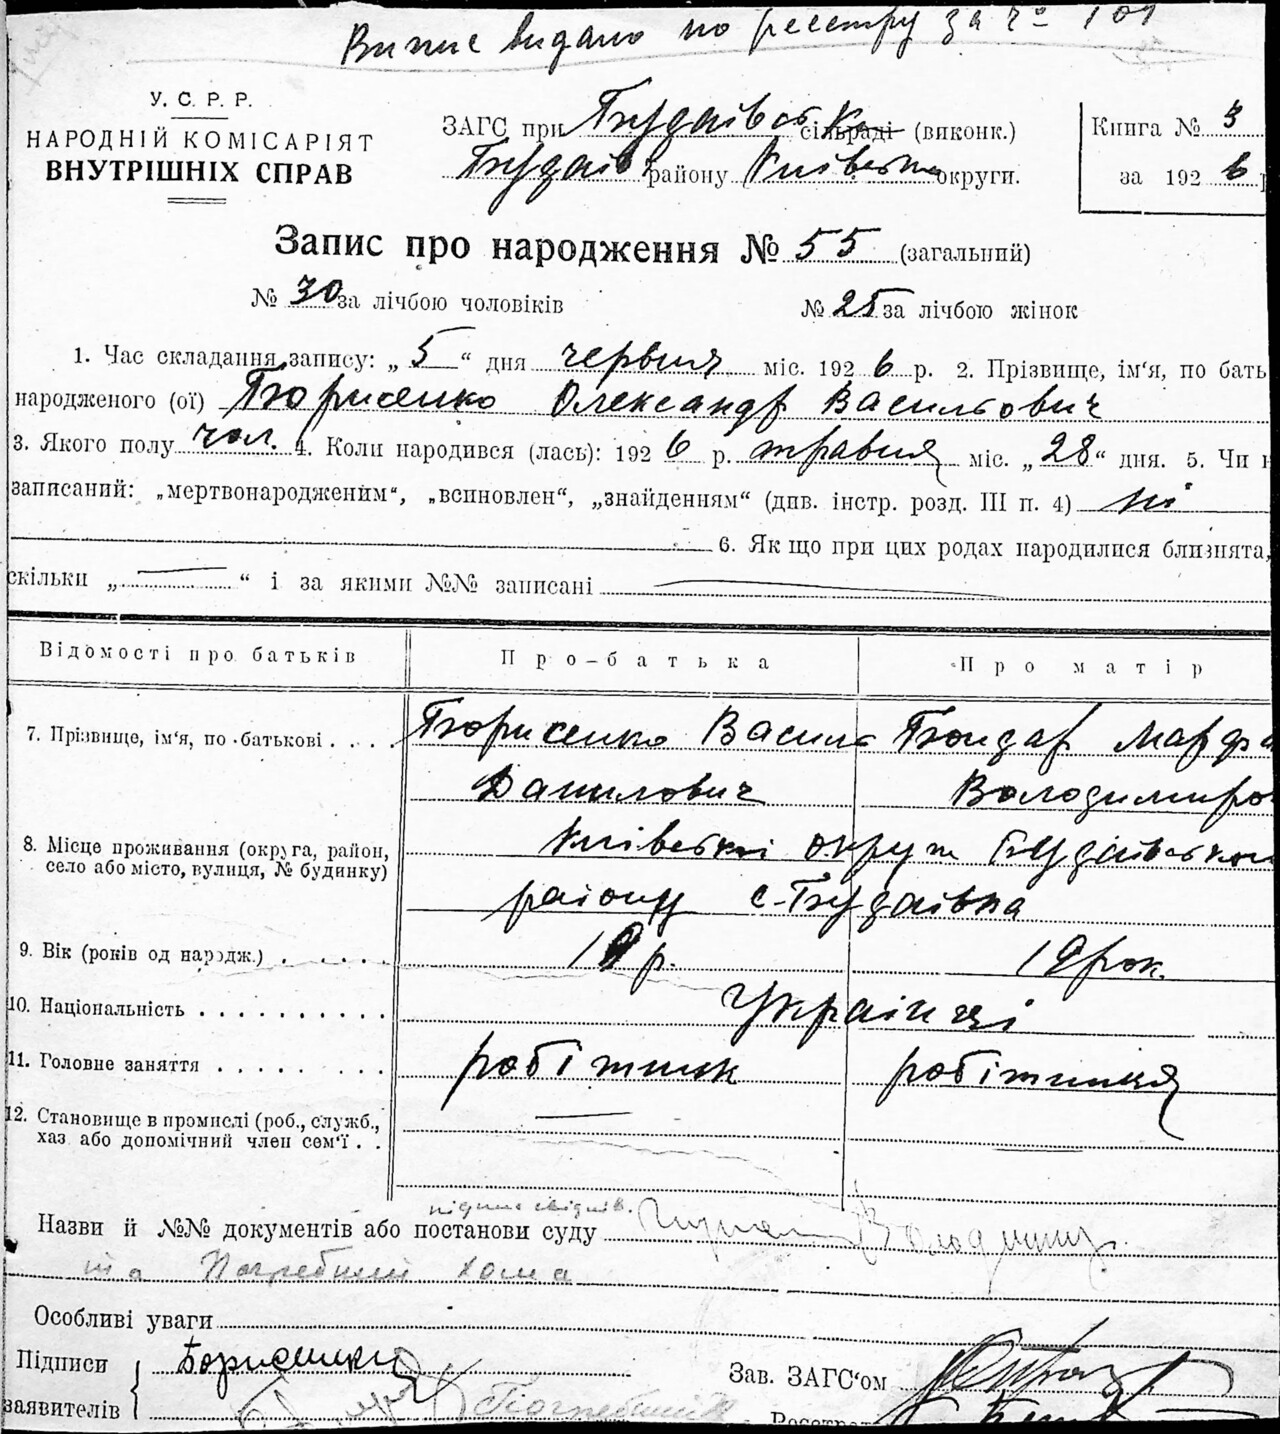 Випис видано по реєстру за № 101
У. С. Р. Р.
НАРОДНІЙ КОМІСАРІЯТ
ВНУТРІШНІХ СПРАВ
ЗАГС при Будаївськ сільраді (виконк.)
Будаїв району Київськ округи.
Книга № 3
за 1926
Запис про народження № 55 (загальний)
№ 30 за лічбою чоловіків № 25 за лічбою жінок
1. Час складання запису: „ 5 “ дня червня міс. 1926 р. 2. Прізвище, ім‘я, по бать
народженого (ої) Борисенко Олександр Васильович
3. Якого полу чол. 4. Коли народився (лась): 1926 р. травня міс. „28“ дня. 5. Чи н
записаний: „мертвонародженим“, „всиновлен“, „знайденням“ (див. інстр. розд. III п. 4) ні
6. Як що при цих родах народилися близнята,
скільки „ “ і за якими №№ записані
Відомості про батьків Про батька Про матір
7. Прізвище, ім‘я, по батькові . . . . Борисенко Василь Бондар Марфа
Данилович Володимиров
8. Місце проживання (округа, район, село або місто, вулиця, № будинку) Київської округи Будаївського
району с. Будаївка
9. Вік (років од народж.) . . . . . 19 р. 19 рок.
10. Національність . . . . . . . . . . Українці
11. Головне заняття . . . . . . . . . робітник робітниця
12. Становище в промислі (роб., служб.,
хаз або допомічний член сем‘ї . .
підпис свідків.
Назви й №№ документів або постанови суду Володимир
та Погребний Хома
Особливі уваги
Підписи Борисенко Зав. ЗАГС‘ом
заявителів Погребний